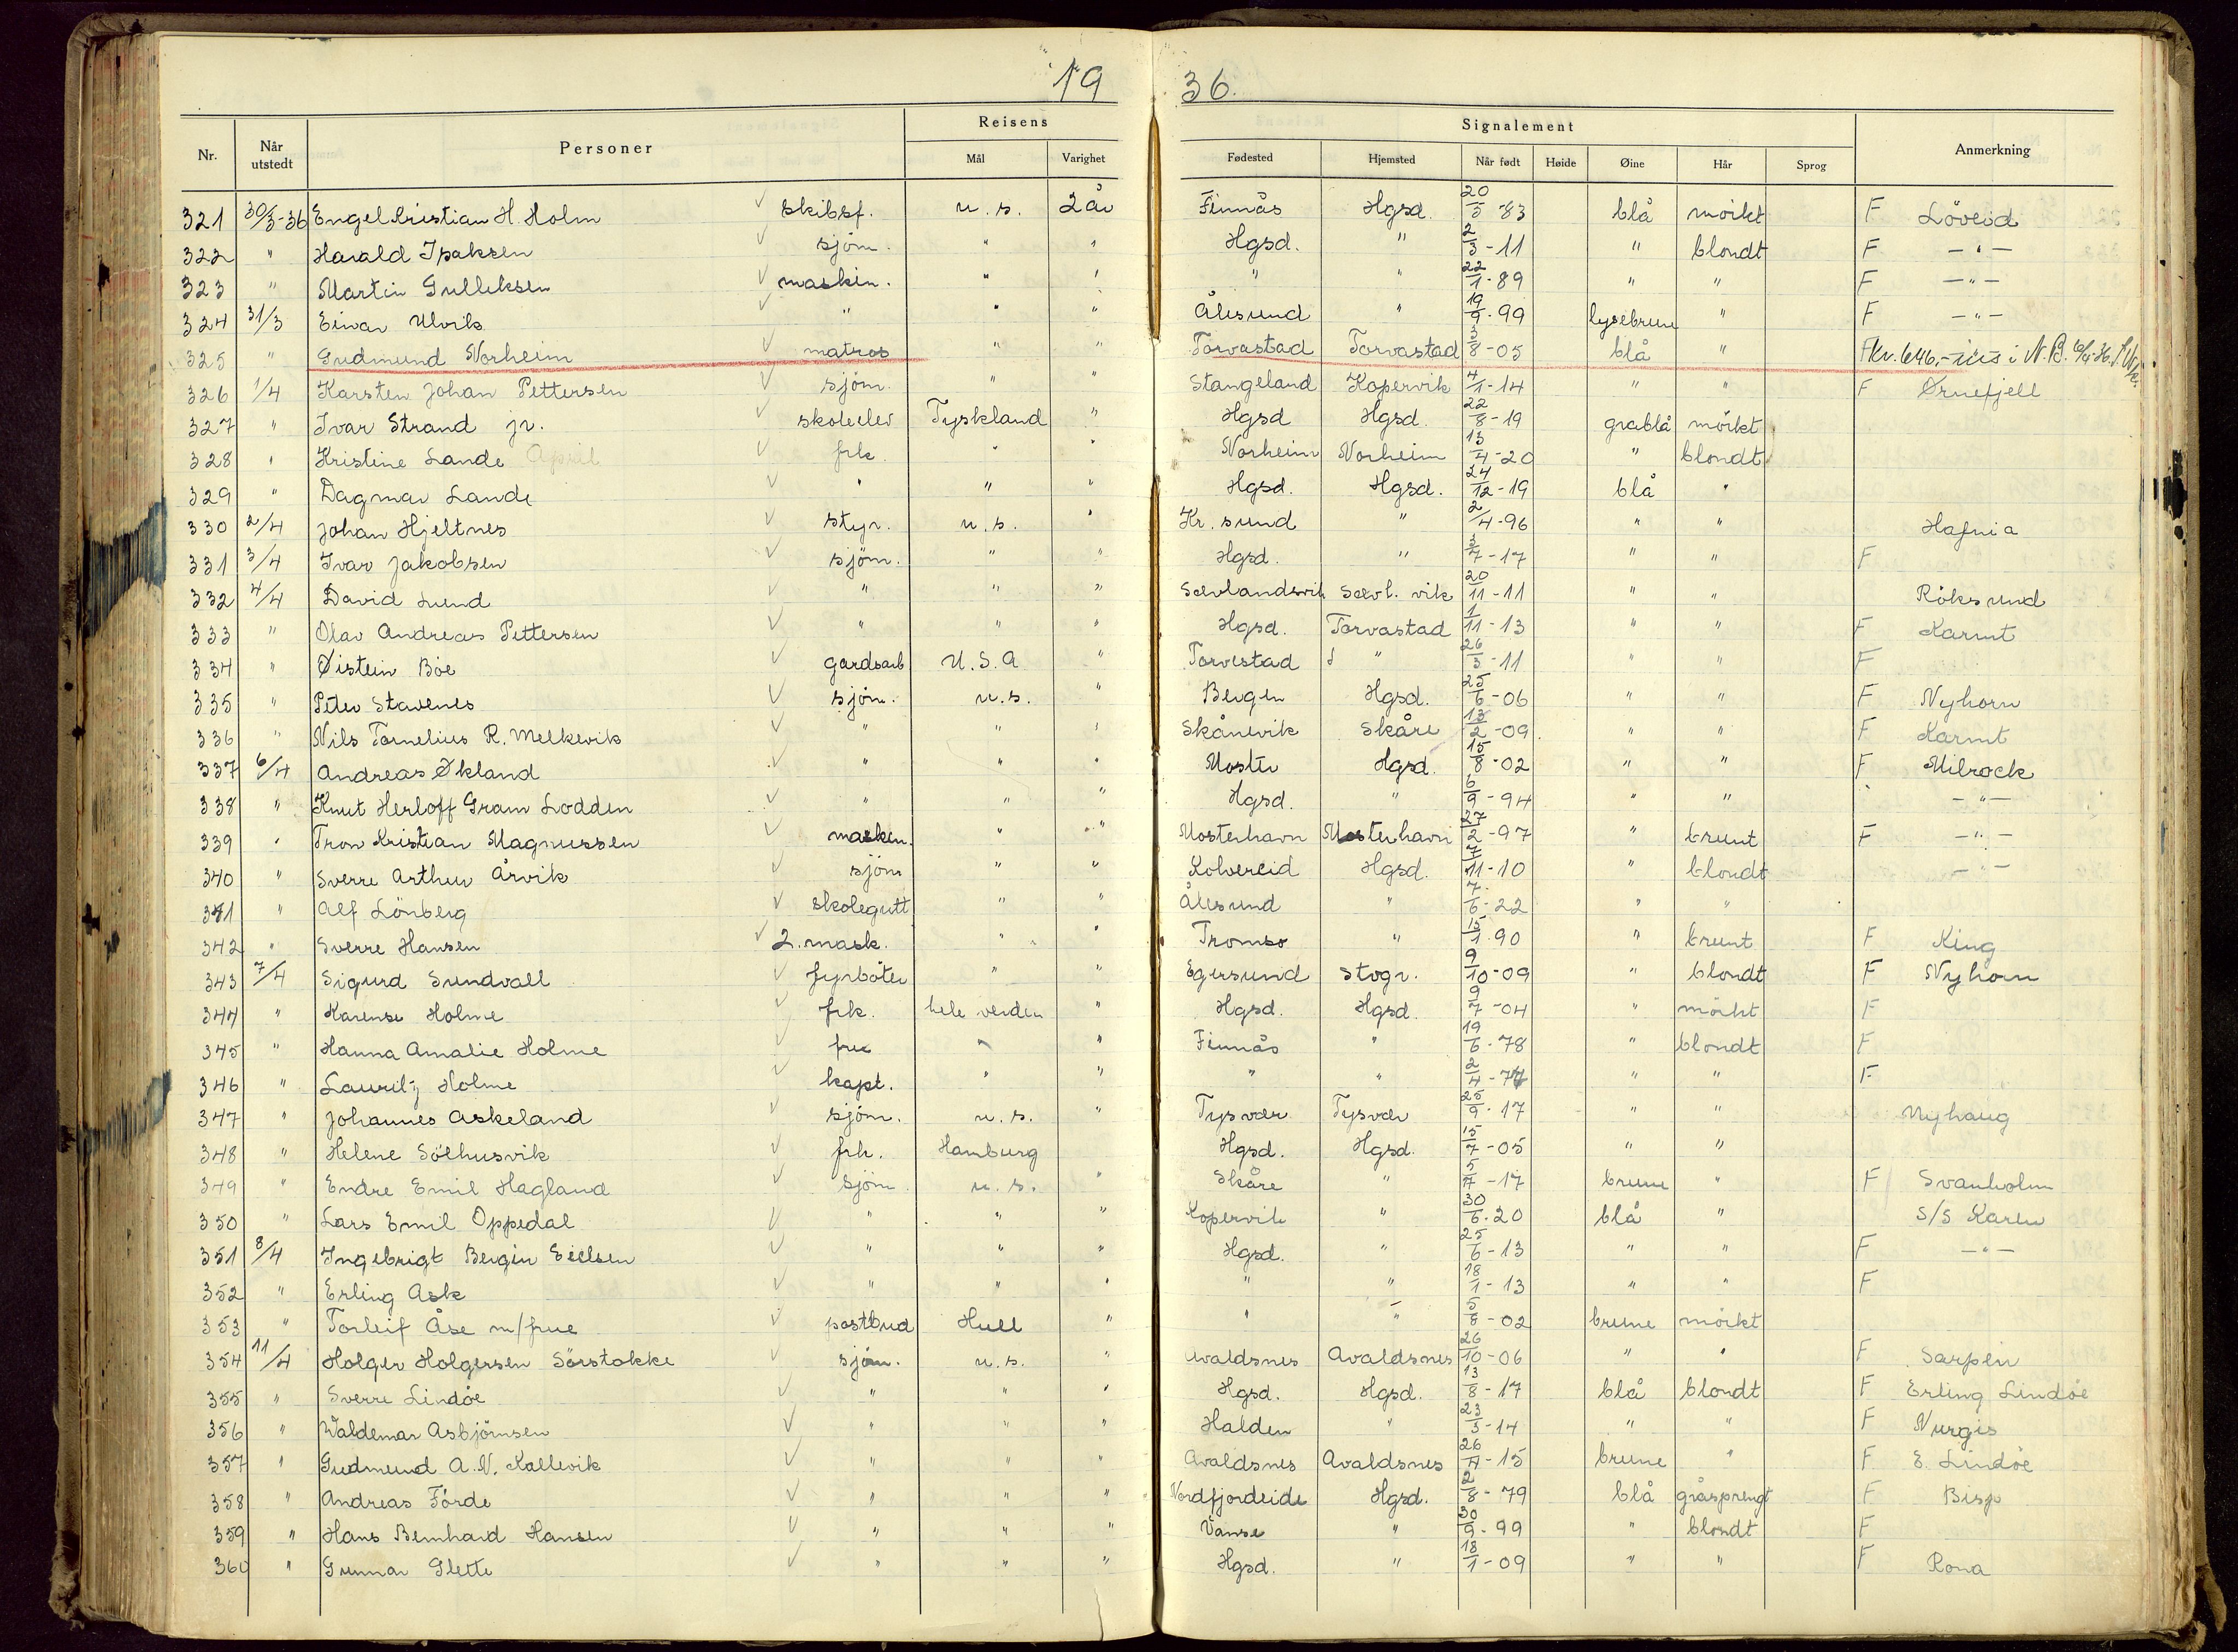 19 36.
Nr. Når utstedt Personer Reisens Mål Varighet Signalement Fødested Hjemsted Når født Høide Øine Hår Sprog Anmerkning
321 30/3-36 Engel Kristian H. Holm skibsf. u.s. 2 år Finnås Hgsd. 20/5-83 blå mörkt F Löveid
322 " Harald Isaksen sjöm. " " Hgsd. " 2/3-11 " blondt F - " -
323 " Martin Gulliksen maskin. " " " " 22/1-89 " " F - " -
324 31/3 Einar Ulvik " " " Ålesund " 19/9-99 lysebrune " F - " -
325 " Gudmund Norheim matros " " Torvastad Torvastad 3/8-05 blå " F
326 1/4 Karsten Johan Pettersen sjöm. " " Stangeland Kopervik 4/1-14 " " F Ørnefjell
327 " Ivar Strand jr. skoleelev Tyskland " Hgsd Hgsd. 22/8-19 gråblå mörkt
328 " Kristine Lande frk. " " Norheim Norheim 13/4-20 " blondt
329 " Dagmar Lande " " " Hgsd. Hgsd. 24/12-19 blå "
330 2/4 Johan Hjeltnes styr. u.s. " Kr. sund " 2/4-96 " " Hafnia
331 3/4 Ivar Jakobsen sjöm. " " Hgsd. " 3/7-17 " " F
332 4/4 David Lund " " " Sævlandsvik Sævl. vik 20/11-11 " " Röksund
333 " Olav Andreas Pettersen " " " Hgsd. Torvastad 1/11-13 " " F Karmt
334 " Øistein Böe gardsarb U.S.A. " Torvestad " 26/3-11 " " F
335 " Peter Stavenes sjöm. u.s. " Bergen Hgsd. 25/6-06 " " F Nyhorn
336 " Nils Tornelius R. Melkevik " " " Skånevik Skåre 13/2-09 " " F Karmt
337 6/4 Andreas Økland " " " Moster Hgsd. 15/8-02 " " F Milrock
338 " Knut Herloff Gram Lodden " " " Hgsd. " 6/9-94 " " - " -
339 " Tron Kristian Magnussen maskin. " " Mosterhavn Mosterhavn 27/2-97 " brunt F - " -
340 " Sverre Arthur Årvik sjöm " " Kolvereid Hgsd. 7/11-10 " blondt - " -
341 " Alf Lönberg skolegutt " " Ålesund " 7/6-22 " "
342 " Sverre Hansen 2. mask. " " Tromsö " 15/1-90 " brunt F King
343 7/4 Sigurd Sundvall fyrböter " " Egersund Stvgr. 9/10-09 " blondt F Nyhorn
344 " Karense Holme frk. hele verden " Hgsd. Hgsd. 9/7-04 " mörkt F
345 " Hanna Amalie Holme frue " " Finnås " 19/6-78 " blondt F
346 " Lauritz Holme kapt. " " " " 2/4-74 " " F
347 " Johannes Askeland sjöm. u.s. " Tysvær Tysvær 25/9-17 " " Nyhaug
348 " Helene Sölhusvik frk. Hamburg Hgsd. Hgsd. 15/7-05 " "
349 " Endre Emil Hagland sjöm. u.s. " Skåre " 5/7-17 brune " F Svanholm
350 " Lars Emil Oppedal " " " Kopervik " 30/6-20 blå " S/S Karen
351 8/4 Ingebrigt Bergin Eielsen " " " Hgsd. " 25/6-13 " " F - " -
352 " Erling Ask " " " " " 18/1-13 " " F
353 " Torleif Åse m/frue postbud Hull " " " 5/8-02 brune mörkt
354 11/4 Holger Holgersen Sörstokke sjöm. u.s. " Avaldsnes Avaldsnes 26/10-06 " " F Sarpen
355 " Sverre Lindöe " " " Hgsd. Hgsd. 13/8-17 blå blondt F Erling Lindöe
356 " Waldemar Asbjörnsen " " " Halden " 23/3-14 " " F Nurgis
357 " Gudmund A.N. Kallevik " " " Avaldsnes Avaldsnes 26/11-15 brune " F E. Lindöe
358 " Andreas Förde " " " Nordfjordeide Hgsd. 2/8-79 blå gråsprengt F Bisp
359 " Hans Bernhard Hansen " " " Vanse " 30/9-99 " blondt F
360 " Gunnar Glette " " " Hgsd. " 18/1-09 " " F Rona